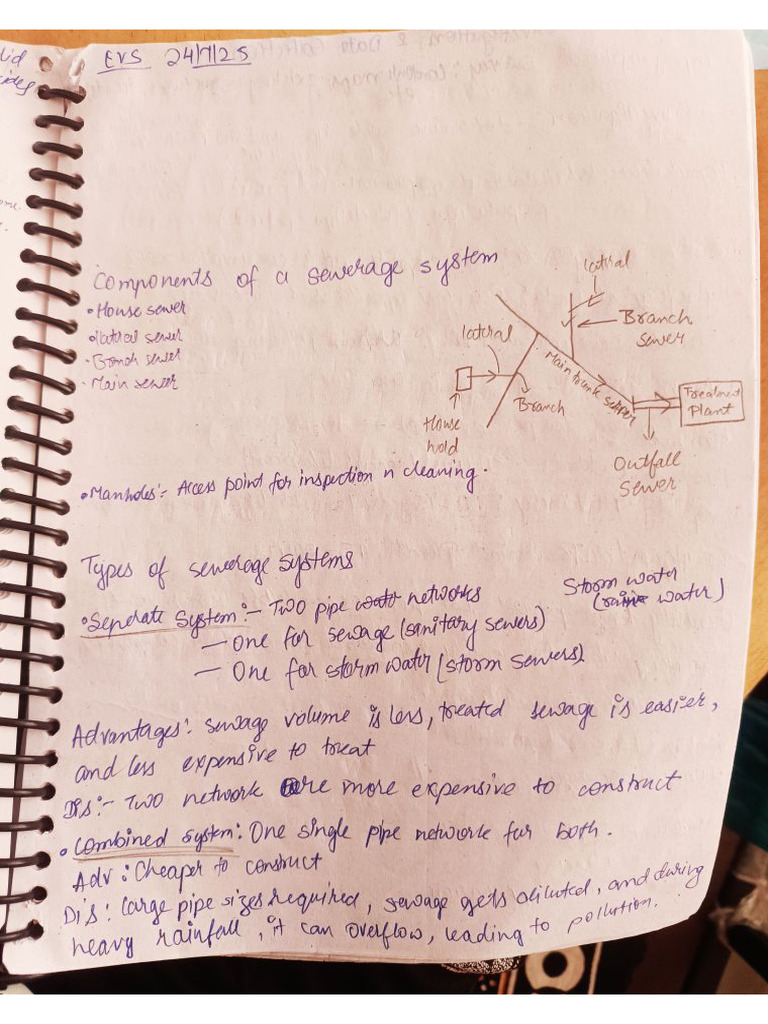 EVS 24/7/25
lid
cides
Components of a sewerage system
• House sewer
• lateral sewer
• Branch sewer
• Main sewer
lateral
Branch
sewer
lateral
Main trunk sewer
Treatment
Plant
Branch
House
hold
Outfall
Sewer
• Manholes:- Access point for inspection n cleaning.
Types of sewerage systems
• Seperate System:- Two pipe networks
Storm water
(rain water)
— One for sewage (sanitary sewers)
— One for storm water (storm sewers)
Advantages: sewage volume is less, treated sewage is easier,
and less expensive to treat
Dis:- Two network are more expensive to construct
• Combined system: One single pipe network for both.
Adv: Cheaper to construct
Dis: large pipe sizes required, sewage gets diluted, and during
heavy rainfall, it can overflow, leading to pollution.